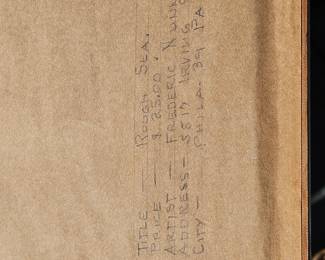 TITLE — ROUGH SEA.
PRICE — $25.00.
ARTIST — FREDERIC
ADDRESS — IRVING
CITY — PHILA. 39 PA